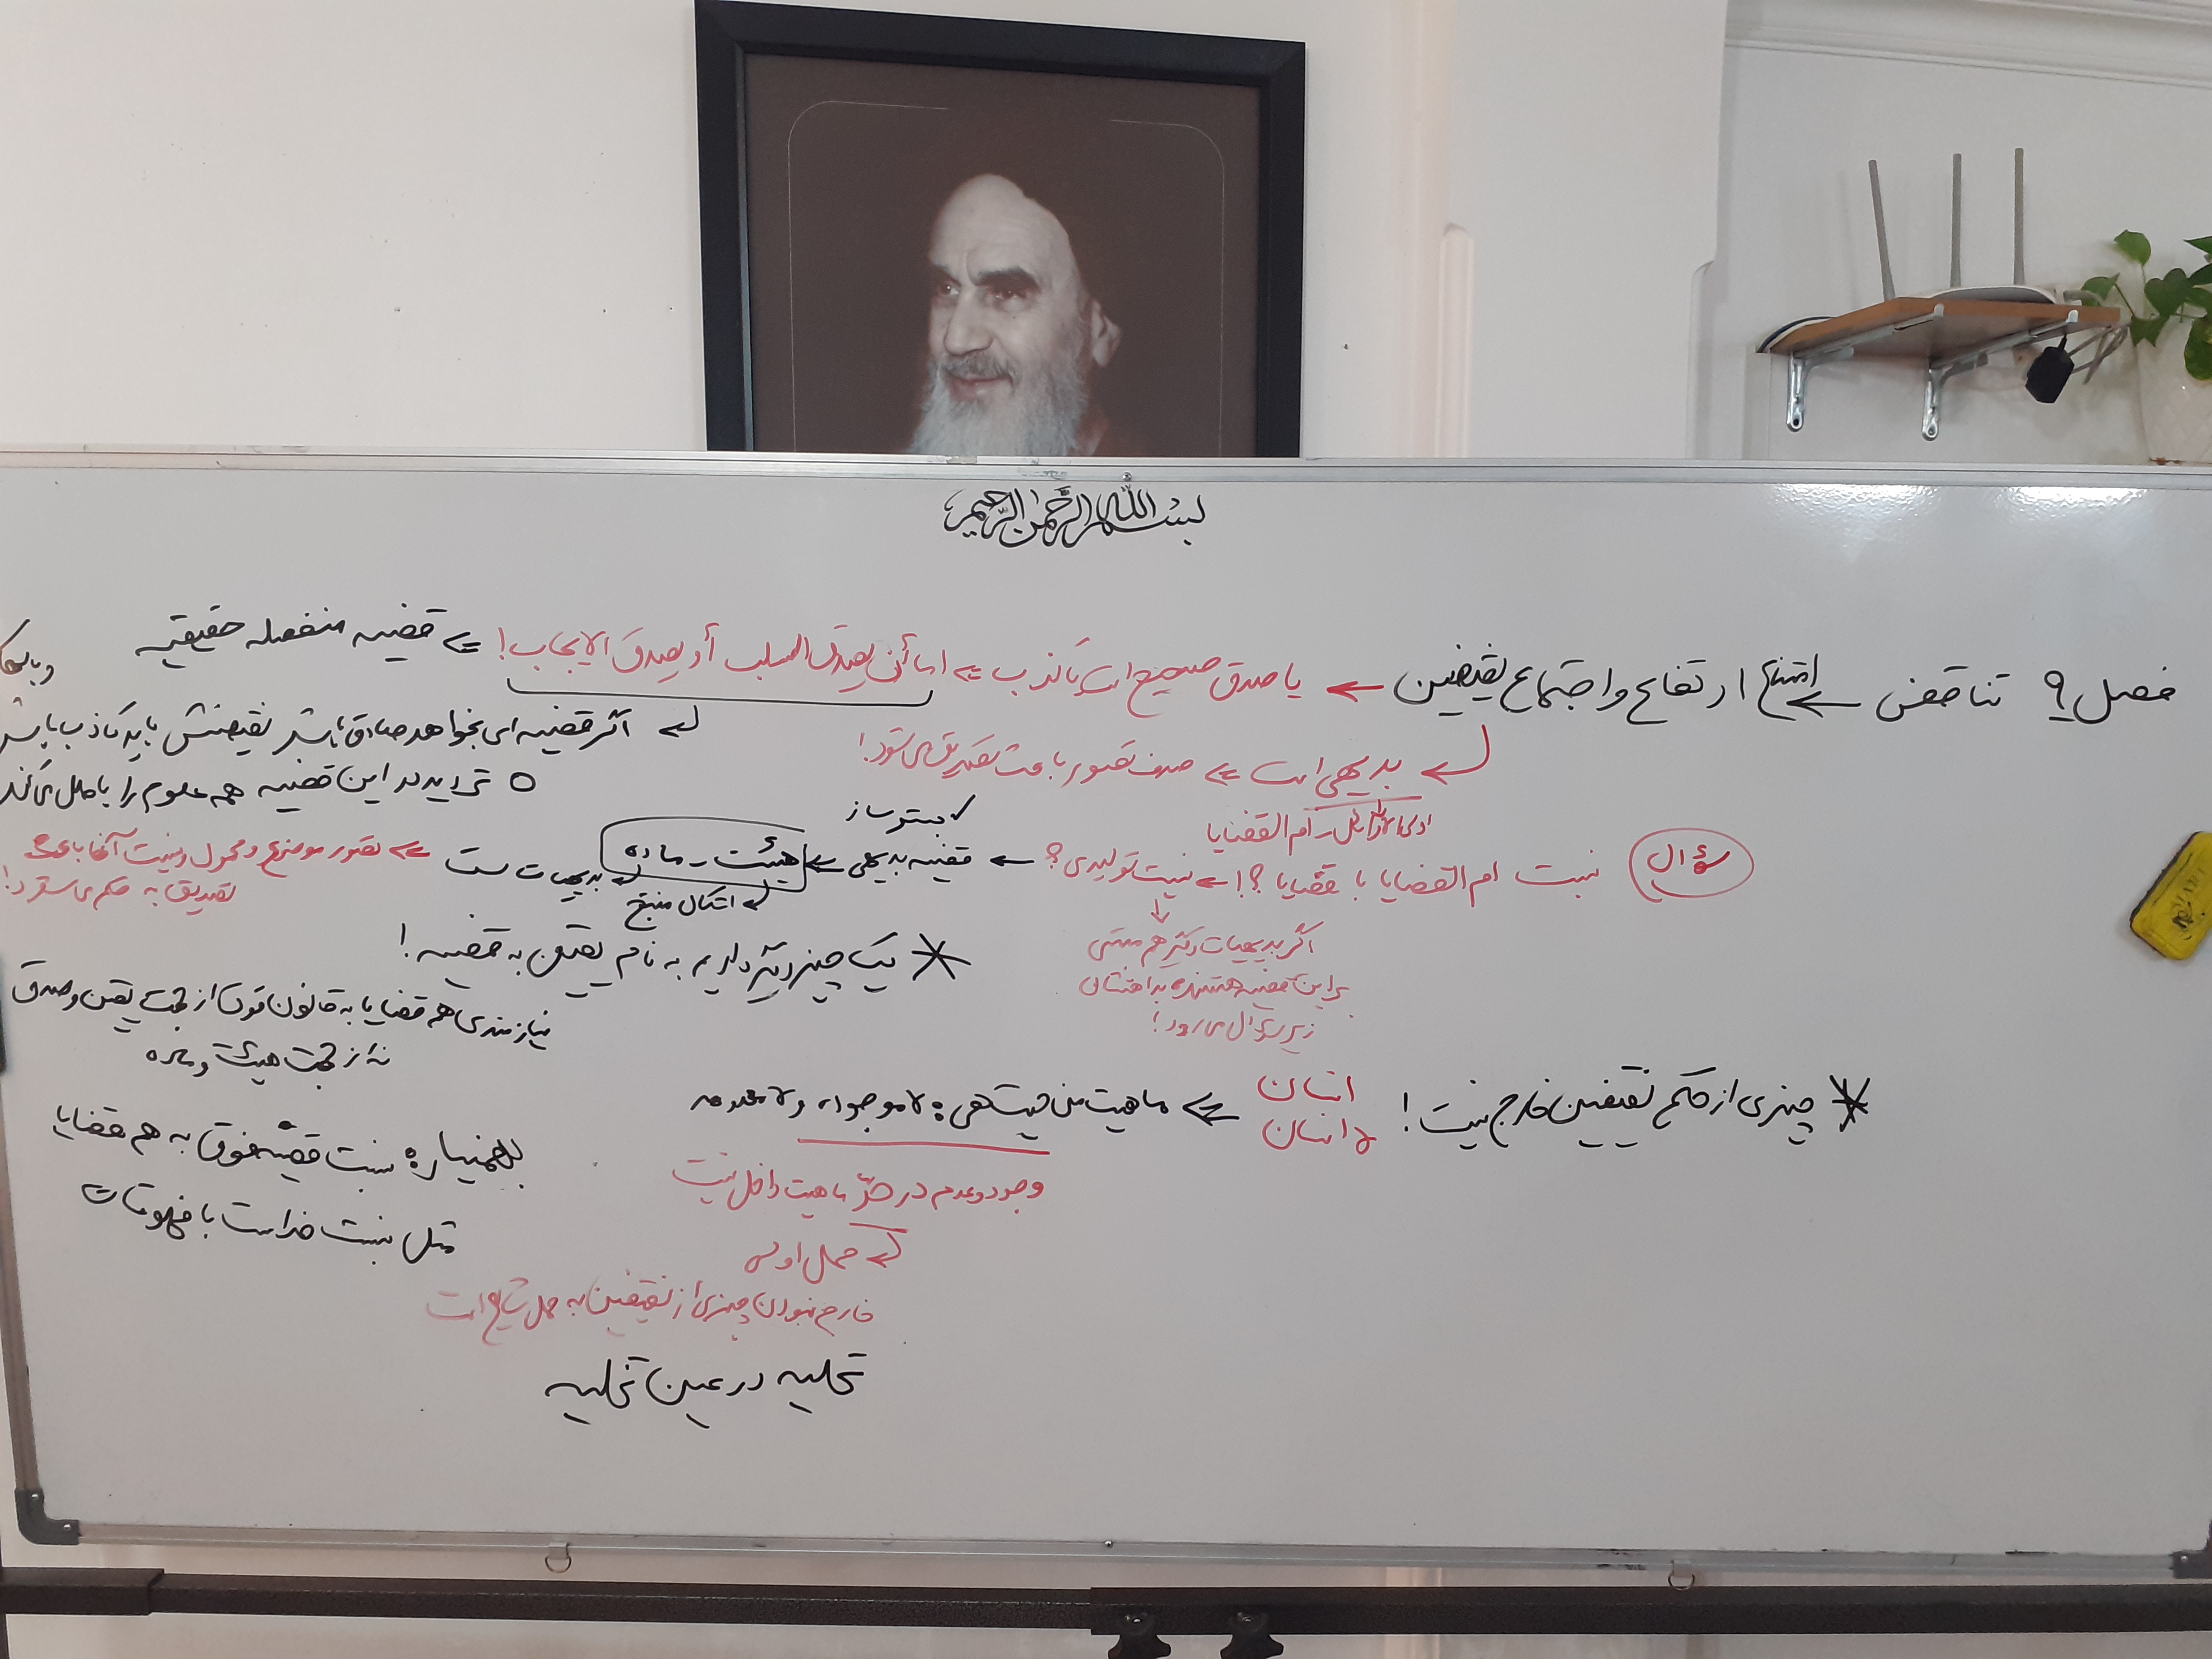 بسم الله الرحمن الرحیم
فصل ۹ تناقض ← امتناع ارتفاع و اجتماع نقیضین ← یا صدق صحیح است یا کذب ⇐ اما أن یصدق السلب أو یصدق الایجاب! ⇐ قضیه منفصله حقیقیه
اگر قضیه‌ای بخواهد صادق باشد نقیضش باید کاذب باشد
بدیهی است ⇐ صرف تصور باعث تصدیق می‌شود!
○ تردید در این قضیه همه علوم را باطل می‌کند
اولی الاوائل - ام القضایا
✓ بسترساز
سؤال نسبت ام القضایا با قضایا ؟! ← نسبت تولیدی؟ ← قضیه بدیهی ← هیئت - ماده
بدیهیات ست ⇐ تصور موضوع و محمول و نسبت آنها باعث
تصدیق به حکم می‌شود!
اشکال منتج
اگر بدیهیات دیگر هم مبتنی
بر این قضیه هستند، بداهتشان
زیر سؤال می‌رود!
* یک چیز دیگر داریم به نام یقین به قضیه!
نیازمندی همه قضایا به قانون فوق از جهت یقین و صدق
نه از جهت هیئت و ماده
* چیزی از حکم نقیضین خارج نیست! انسان
لا انسان
⇐ ماهیت من حیث هی: لا موجوده و لا معدومه
وجود و عدم در حدّ ماهیت داخل نیست
حمل اولی
خارج نبودن چیزی از نقیضین به حمل شایع است
بهمنیار: نسبت قضیه فوق به همه قضایا
مثل نسبت خداست با
تحلیه در عین تخلیه